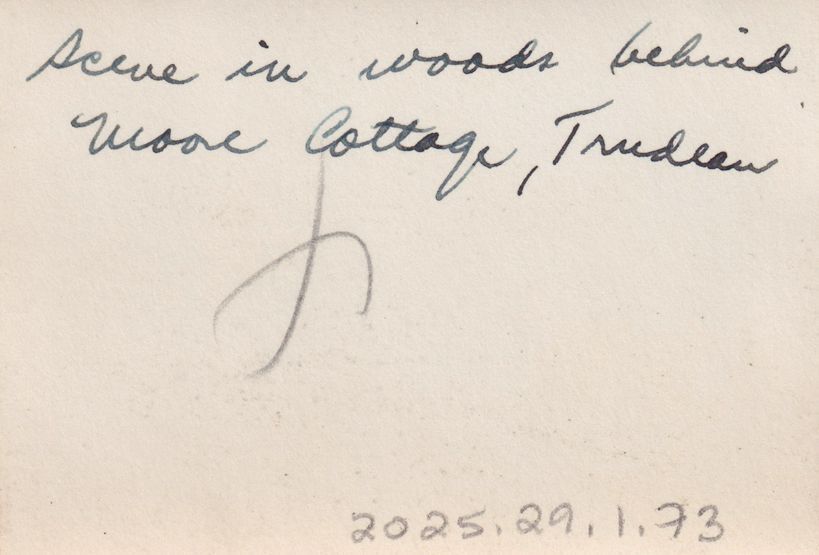 Scene in woods behind
Moore Cottage, Trudeau
2025.29.1.73